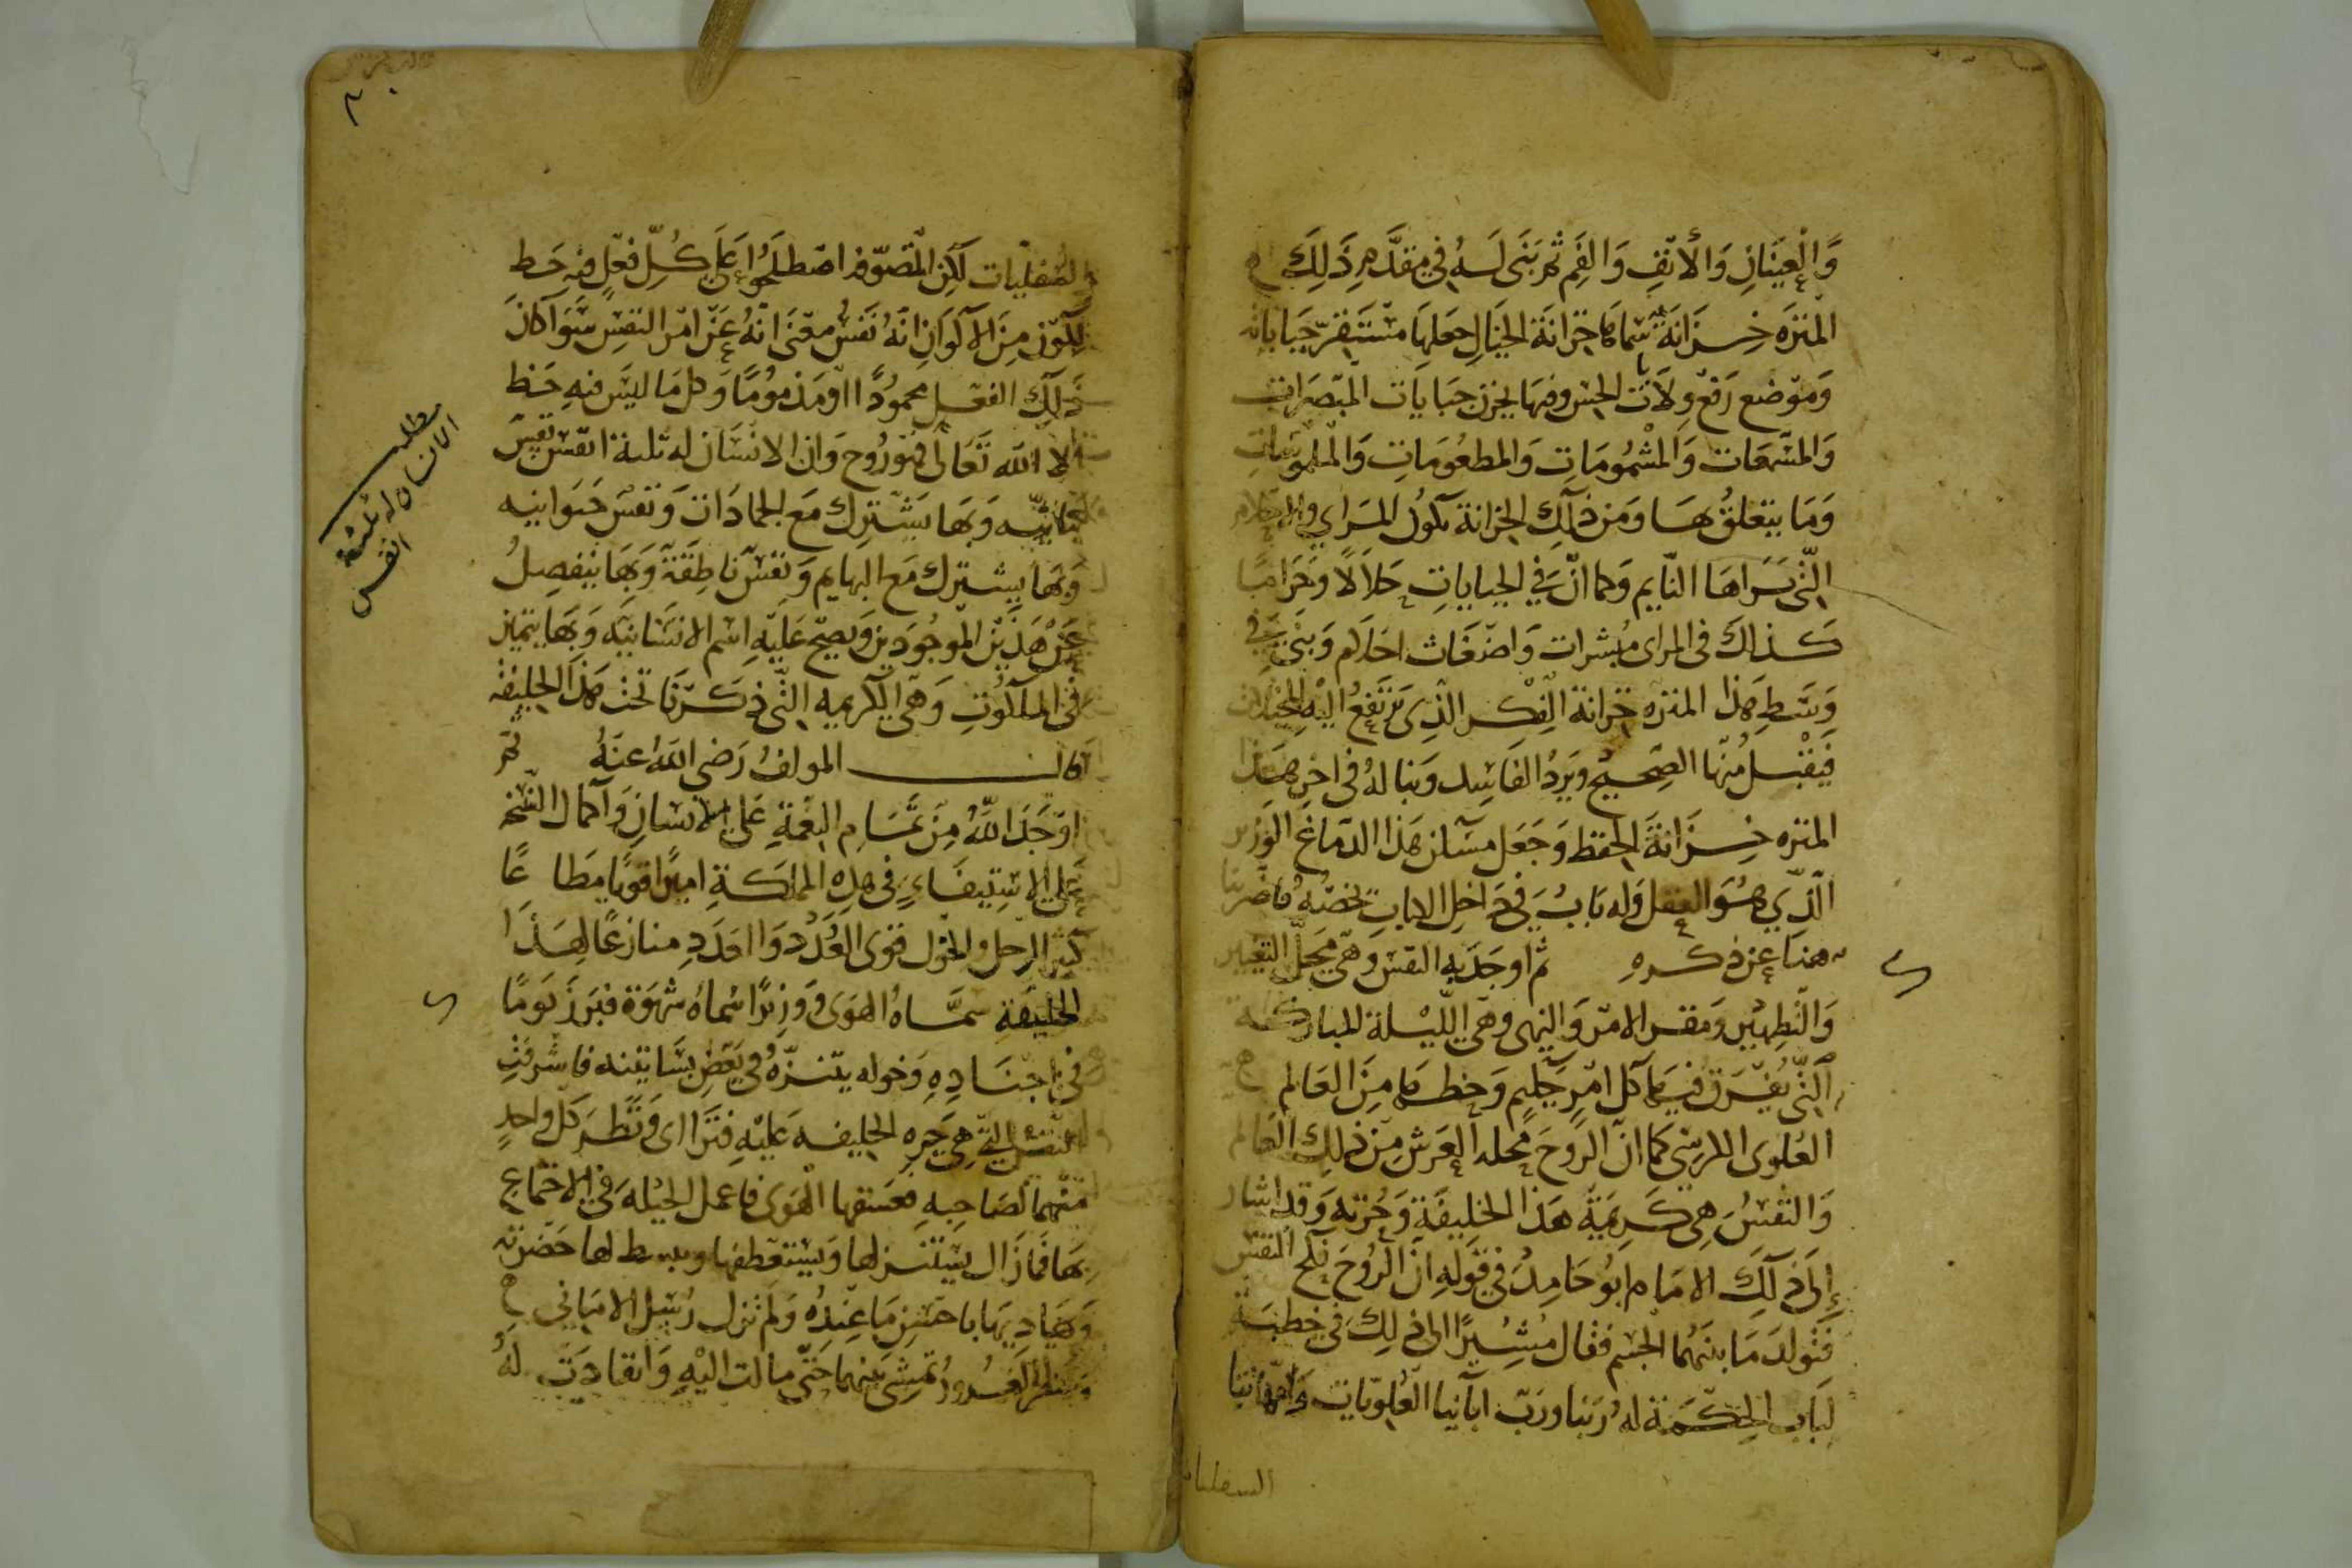 وَالْعَيْنَانِ وَالْأَنْفِ وَالْفَمِ ثم بَنَى لَهُ فِي مقدَّمِ ذَلِكَ
المنتزه خِزَانَة سَمَاهَا خزانَة الخيالِ جعلها مسْتَقرّ جباياته
وَمَوْضع رَفْع ولَات الحِس وفيها يخزن جبايات المبْصَرات
وَالمسْمعَات وَالمَشْمُومَاتِ وَالمطعُومَاتِ وَالملمُوسَاتِ
وَمَا يتعَلقُ بهَا وَمن ذلِكَ الخزانَة تكُونُ المرَاي وَالاحلام
الّتى يَرَاهَا النّايم وَكما انّ فِي الجباياتِ حَلاَلًا وَحَرَامًا
كَذلكَ فى المراى مُبشرات وَاضغَاث احلام وَبنى فِي
وَسَطِ هَذا المنتزه خزانة الفِكْر الذِى ترتَفِعُ اليْه المخيلات
فَيَقْبلُ مِنْهَا الصَّحِيحَ وَيَردُ الفَاسِد وَبنا لهُ فى اخِرِ هَذا
المنتزه خِزَانَةَ الحفظ وَجَعَل مسكن هَذا الدّماغَ الوَزير
الَّذِي هُوَ العقل وَله بَابُ فِي دَاخِل الابيات نخصّهُ فاضرَبنا
هنا عن ذكرهِ ثم اوجَدَ بهِ النفسَ وَهى محَلّ التغيير
وَالتّطهِير وَمقر الامْر وَالنهى وَهى اللّيْلة المباركة
الّتى يُفْرَقُ فيهَا كل امْرٍ حَكِيمٍ وَحظهَا مِنَ العَالم
العُلوى الكرسي كَمَا انّ الرُّوحَ محله العَرش مِن ذلِكَ العَالم
وَالنّفسُ هِى كَرِيمَةُ هَذَا الخَلِيفَةِ وَحُرته وَقد اشار
إِلَى ذلِكَ الامَام ابُو حَامِدُ فى قَولِهِ انّ الرُّوحَ نكح النفس
فَتولدَ مَا بينَهُمَا الجسْم فقَال مُشِيرًا الى ذلِكَ فى خطبَة
لبَاب الحِكْمَة لهُ رَبنا وَرَبّ ابَآئِنا العُلويّات وَامّهاتنا
السفليات
٣٠
والسُفليّات لَكِن المتصَوّفه اصْطلحُوا عَلَى كُلِّ فعْلٍ فيهِ حَظ
لِكَون مِنَ الاكوَانِ انّه نَفْسُ معْنى انّهُ عَن امْر النفس سَوَآ كانَ
ذَلِكَ الفعْل محمُودًا اوْ مَذمُومًا وَكل مَا ليسَ فيهِ حَظ
الا الله تَعَالَى فهو رُوح وَان الانسَان له ثلثة انفُس نفس
نباتيّه وَبهَا يَشْتركُ مَع الجمَادَات وَنفسَ حَيوانيه
وَبهَا يشتركُ مَع البهايم وَنفسَ نَاطِقَة وَبهَا ينفصِلُ
عَنْ هَذَيْن المَوجُودَين وَيصحّ عَليْه اسْم الانسَانيَه وَبهَا يتميز
فى الملكوُتِ وَهى الكَريمه التى ذكَرنَا تحت هَذَا الخليفه
قال المولفُ رَضي الله عنهُ ثمّ
اوجَدَ اللّهُ مِنَ تمَام النِعْمَةِ عَلى الانسَانِ وَاكمال النسْخه
عَلى الاستيفَاءِ فى هذِهِ المملكَةِ اميرًا قويًا مطاعًا
كثير الرجل والخول قوى العُدَد وَالعَدَدِ منازعًا لِهَذَا
الخليفَةِ سمَّاهُ الهوَى وَوَزيرًا سَماهُ شَهوَة فبَرزَ يَومًا
فى اجنادِهِ وَخوله يتنزّهُ فى بَعْضِ بسَاتينه فاشرفتِ
النفس التى هِىَ حره الخليفه عَليْهِ فَترَااى وَنظَر كل واحدٍ
مِنْهُمَا لصَاحِبهِ فعَشقها الهَوى فاعمَل الحِيْلة فى الاجتماع
بهَا فمَا زَال يستنزلها وَيستعطفها وَيبسط لها حَضْرته
وَيهَاديهَا باحسَن مَا عِنْدهُ وَلم تزل رُسُل الامَاني
وَسُفراءِ الغرُور تمشِى بَينهمَا حَتّى مالت اليْهِ وَانقادَتْ لهُ
مطلب
الانسان له ثلثة
انفس